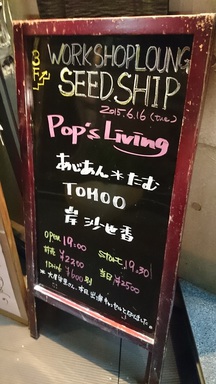 3F
WORKSHOPLOUNG
SEEDSHIP
2015.6.16 (tue)
Pop's Living
あじあん＊たむ
TOHOO
岸 沙也香
OPEN 19:00 START 19:30
前売 ¥2200 当日 ¥2500
1Drink ¥600 別